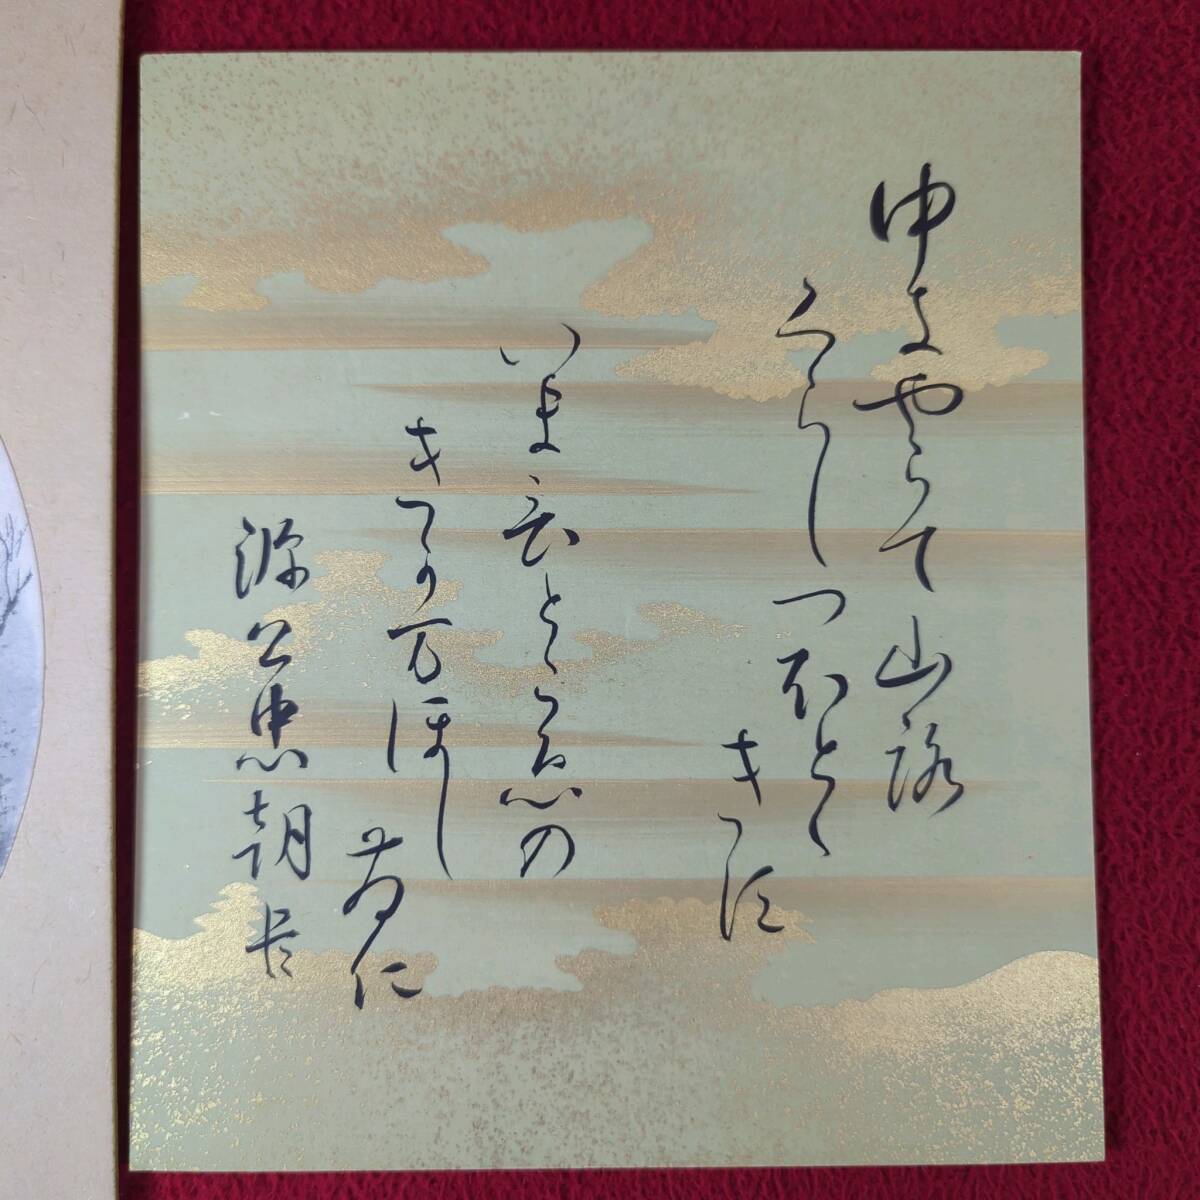 ゆきやらて山路
くらしつほとゝ
きす
いまひとこゑの
きかまほし
さに
源公忠朝臣